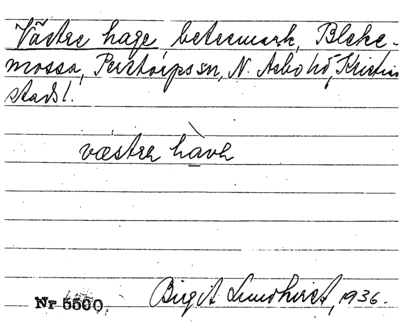 Västre hage betesmark, Bleke-
mossa, Perstorps sn, N. Åsbo hd, Kristian
stads l.
væstrə hàvə
Nr 5500. Birgit Lundkvist, 1936.